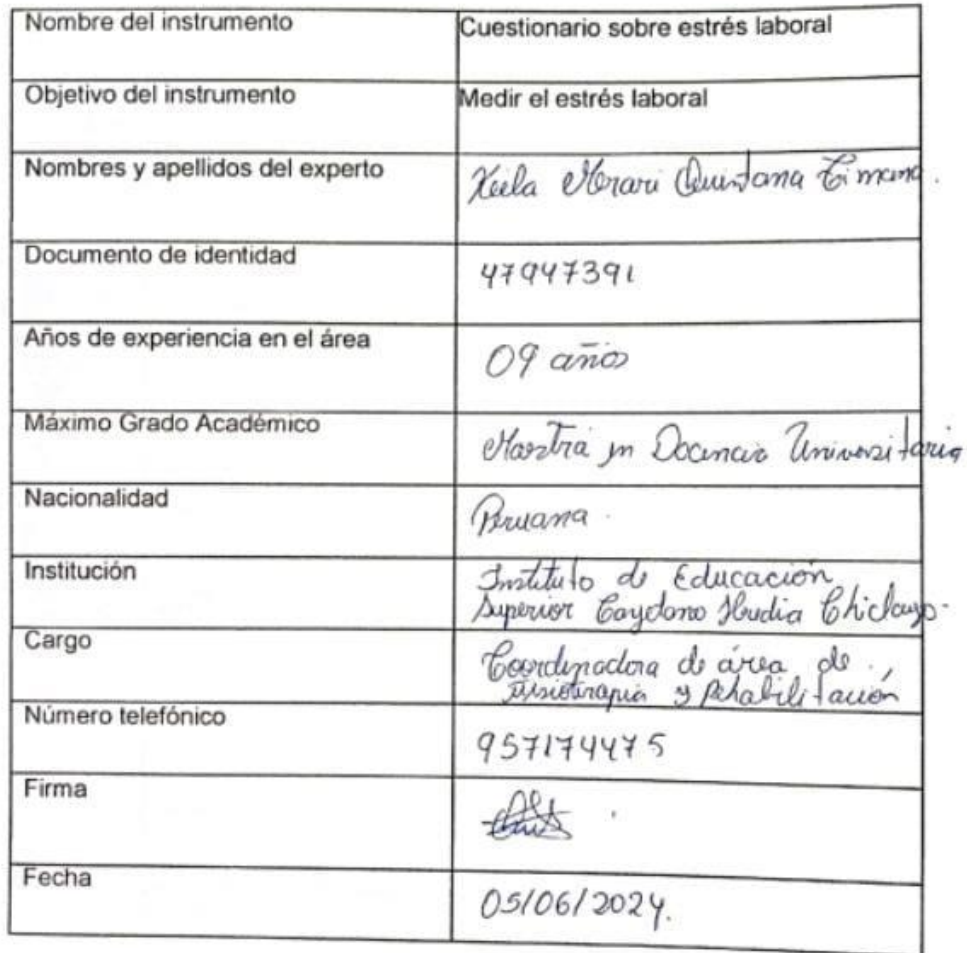 Nombre del instrumento
Cuestionario sobre estrés laboral
Objetivo del instrumento
Medir el estrés laboral
Nombres y apellidos del experto
Keila Merari Quintana Timana.
Documento de identidad
47947391
Años de experiencia en el área
09 años
Máximo Grado Académico
Maestra en Docencia Universitaria
Nacionalidad
Peruana.
Institución
Instituto de Educación
Superior Caydano Chiclayo.
Cargo
Coordinadora de área de
fisioterapia y Rehabilitación
Número telefónico
957174475
Firma
Fecha
05/06/2024.